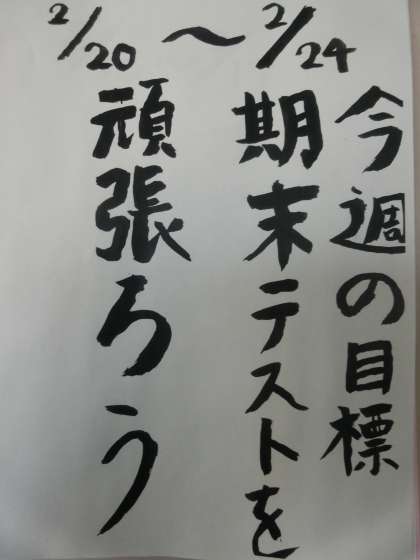 2/20～2/24
今週の目標
期末テストを
頑張ろう